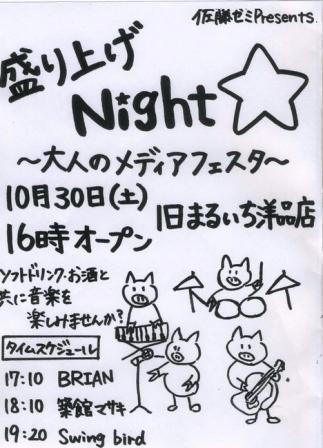 佐藤ゼミPresents.
盛り上げ
Night☆
～大人のメディアフェスタ～
10月30日(土)
旧まるいち洋品店
16時オープン
ソフトドリンク・お酒と
共に音楽を
楽しみませんか?
タイムスケジュール
17:10 BRIAN
18:10 築館マサキ
19:20 Swing bird